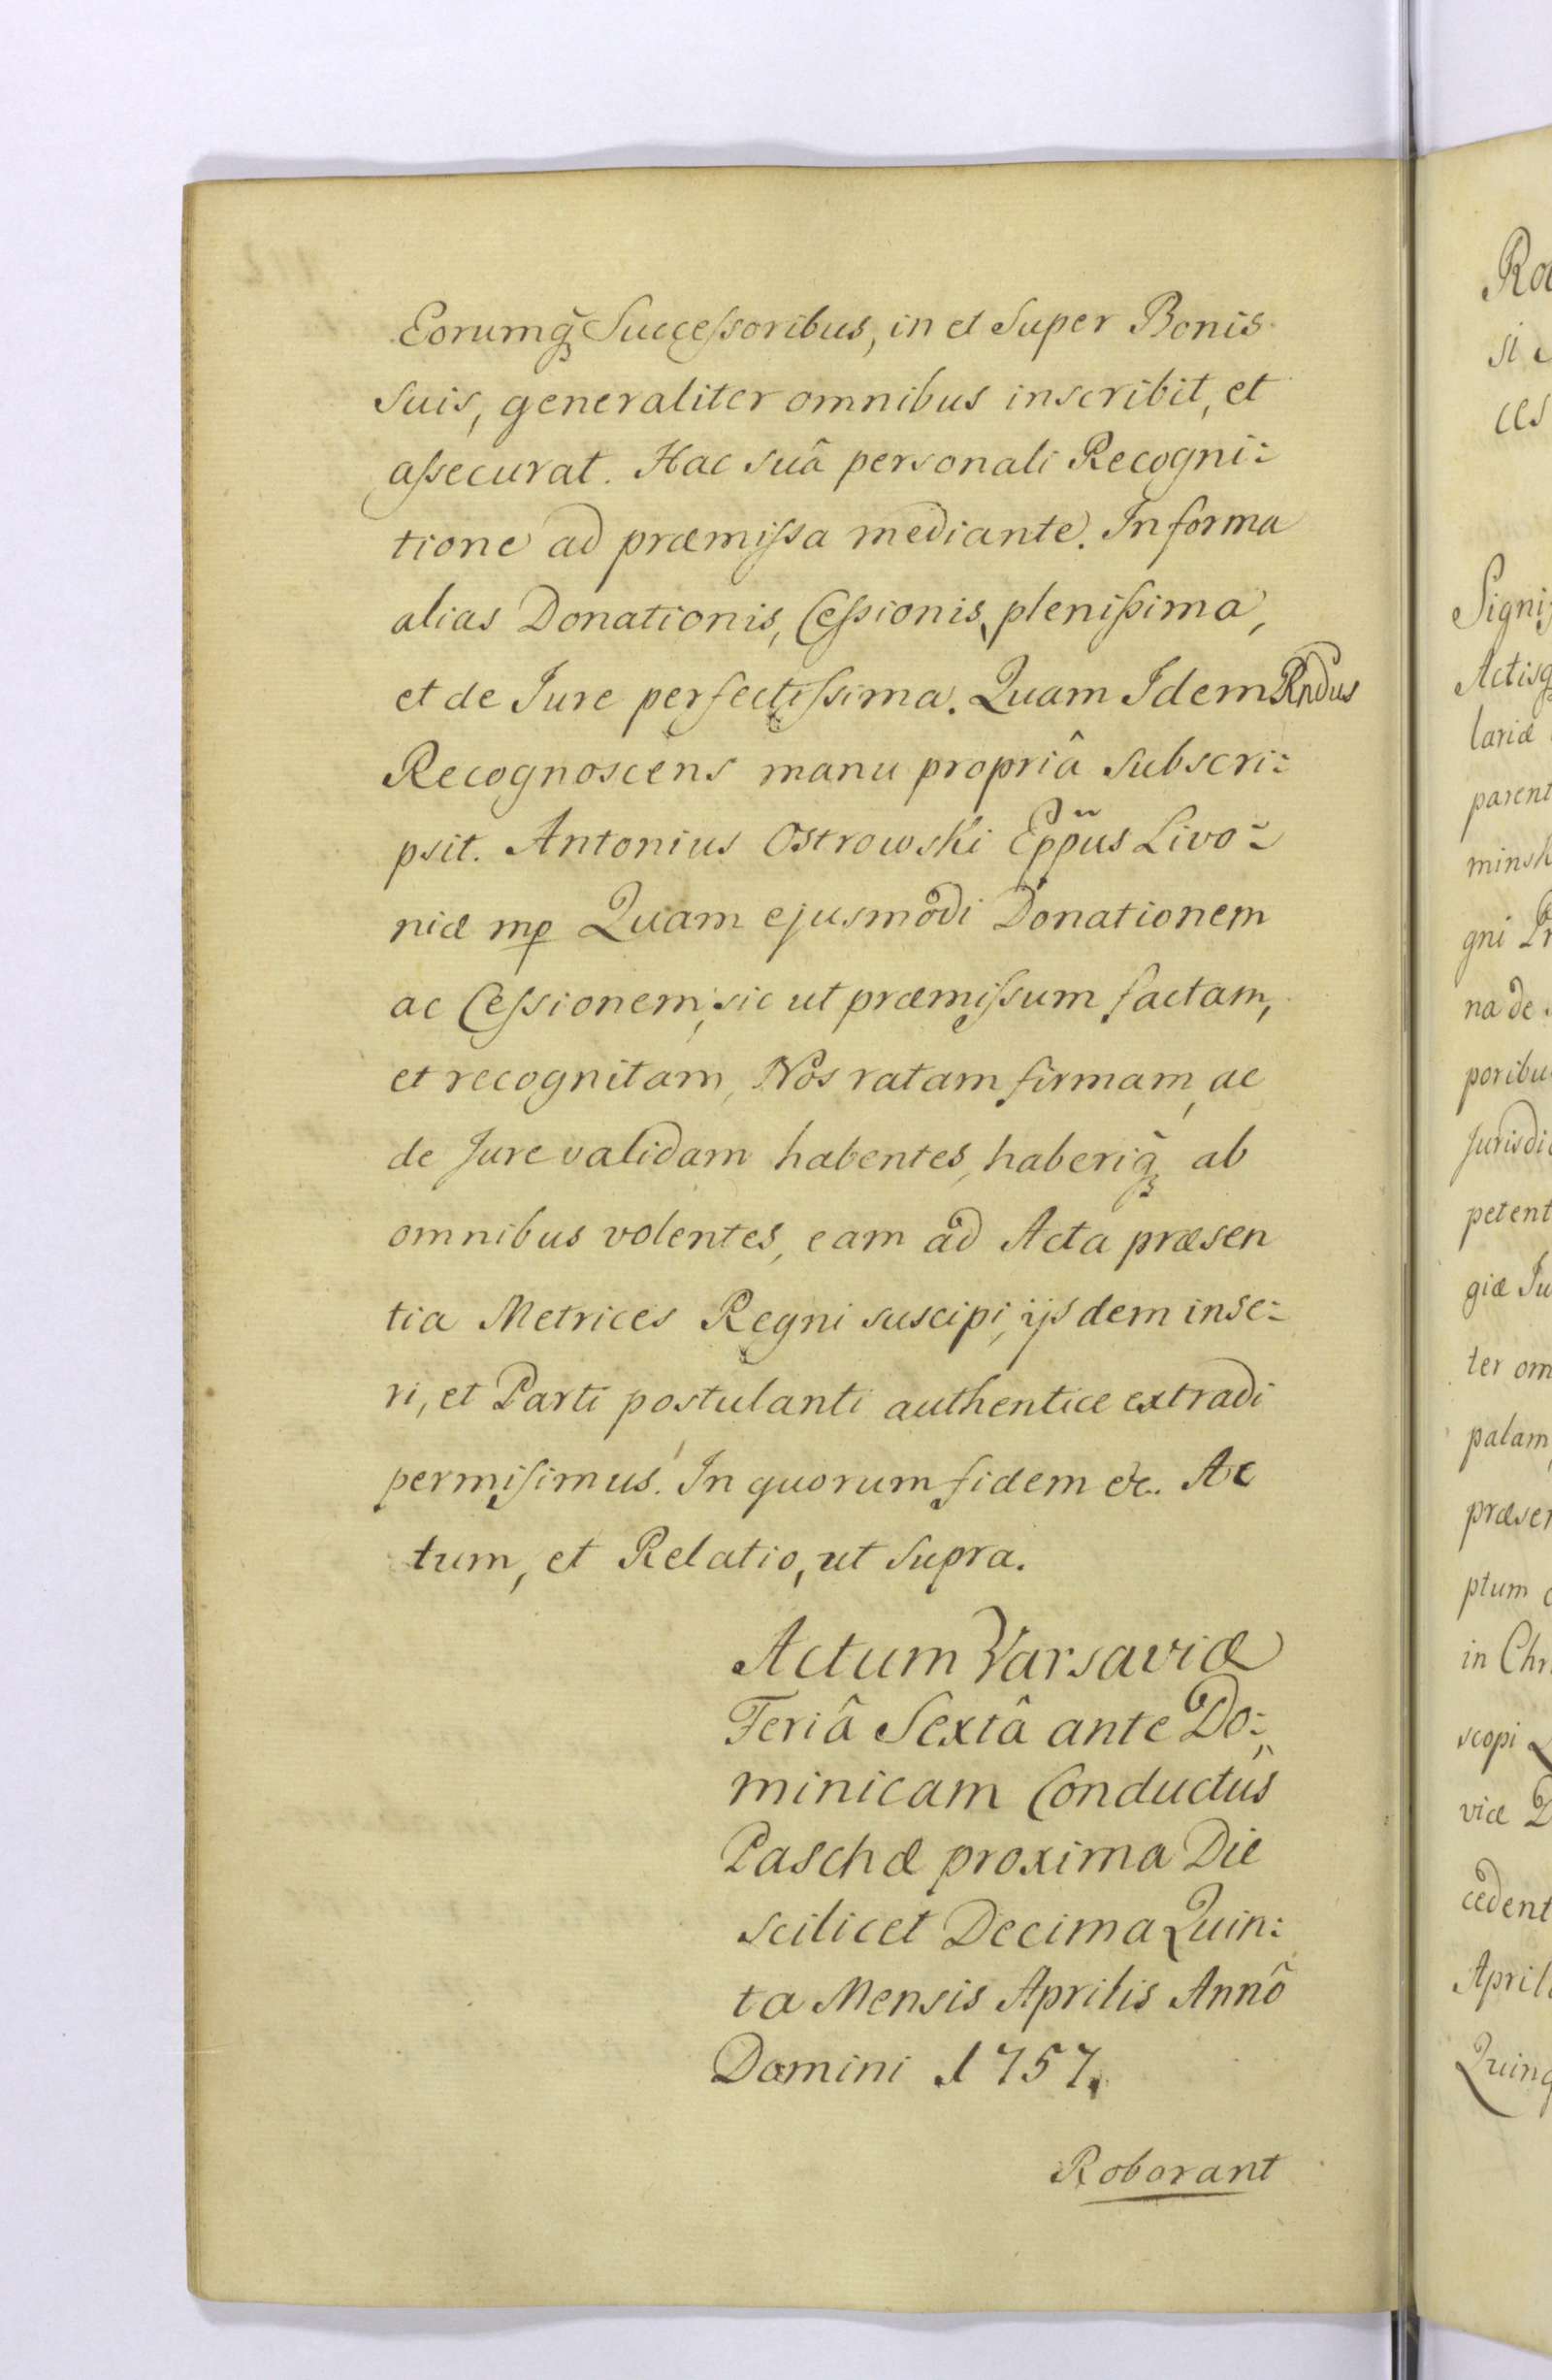 Eorumq̃ Succeſsoribus, in et Super Bonis
suis, generaliter omnibus inscribit, et
aſsecurat. Hac suâ personali Recogni:
tione ad præmiſsa mediante. In forma
alias Donationis, Ceſsionis, pleniſsima,
et de Jure perfectiſsima. Quam Idem Rndus
Recognoscens manu propriâ subscri:
psit. Antonius Ostrowski Epp̃us Livo:
niæ mp Quam ejusmodi Donationem
ac Ceſsionem, sic ut præmiſsum factam,
et recognitam, Nos ratam firmam, ac
de Jure validam habentes, haberiq̃ ab
omnibus volentes, eam ad Acta præsen
tia Metrices Regni suscipi, ijsdem inse:
ri, et Parti postulanti authentice extradi
permiſimus. In quorum fidem &c. Ac
tum, et Relatio, ut supra.
Actum Varsaviæ
Feriâ Sextâ ante Do:
minicam Conductûs
Paschæ proxima Die
scilicet Decima Quin:
ta Mensis Aprilis Annô
Domini 1757.
Roborant
si
ces
Actisq
lariæ
parent
minsk
gni Pr
na de
poribu
Jurisdi
petent
giæ Ju
ter om
palam
præsen
ptum
in Chr
scopi
viæ D
cedent
April
Quinq